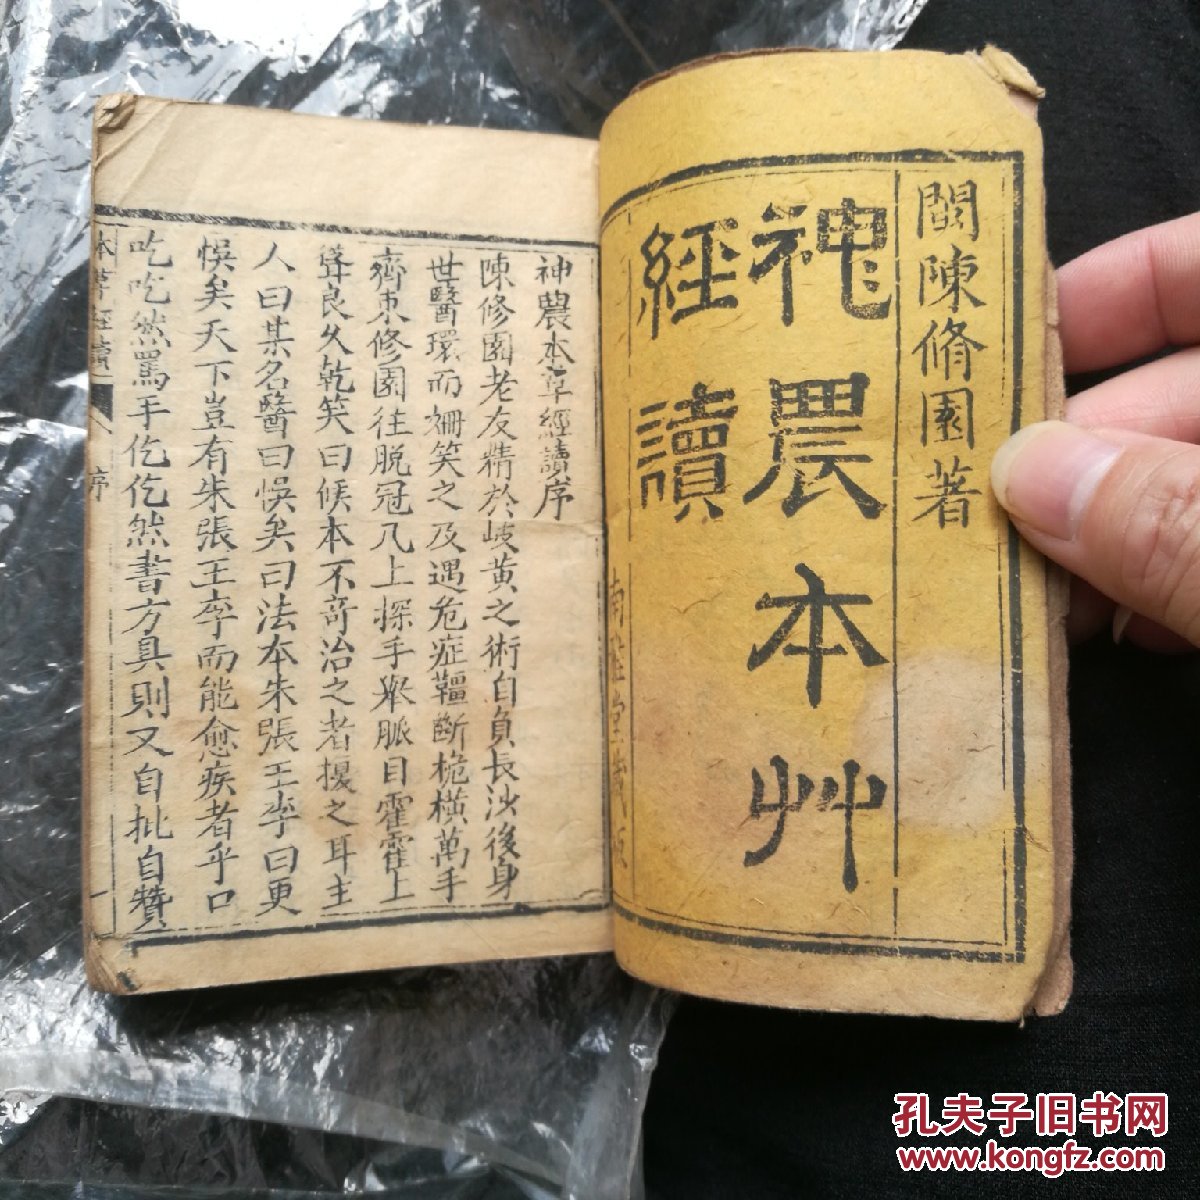 閩陳脩園著
神農本艸
經讀
神農本草經讀序
陳修園老友精於岐黄之術自負長沙後身
世醫環而姍笑之及遇危症韁斷桅横萬手
齊束修園往脱冠几上探手举脈目霍霍上
聳良久乾笑曰候本不奇治之者擾之耳主
人曰某名醫曰悞矣曰法本朱張王李曰更
悞矣天下豈有朱張王李而能愈疾者乎口
吃吃然罵手仡仡然書方具則又自批自贊
本草經讀
序
一
孔夫子旧书网
www.kongfz.com